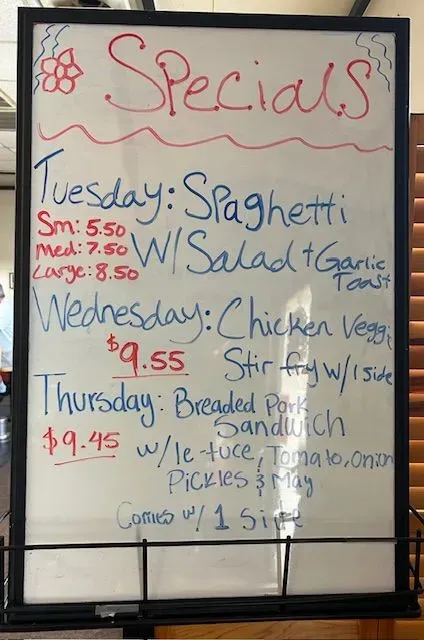 Specials
Tuesday: Spaghetti
Sm: 5.50
Med: 7.50
Large: 8.50
W/ Salad + Garlic
Toast
Wednesday: Chicken Veggi
$9.55
Stir fry w/ 1 side
Thursday: Breaded Pork
Sandwich
$9.45
w/ le-tuce, Tomato, Onion
Pickles & May
Comes w/ 1 Side